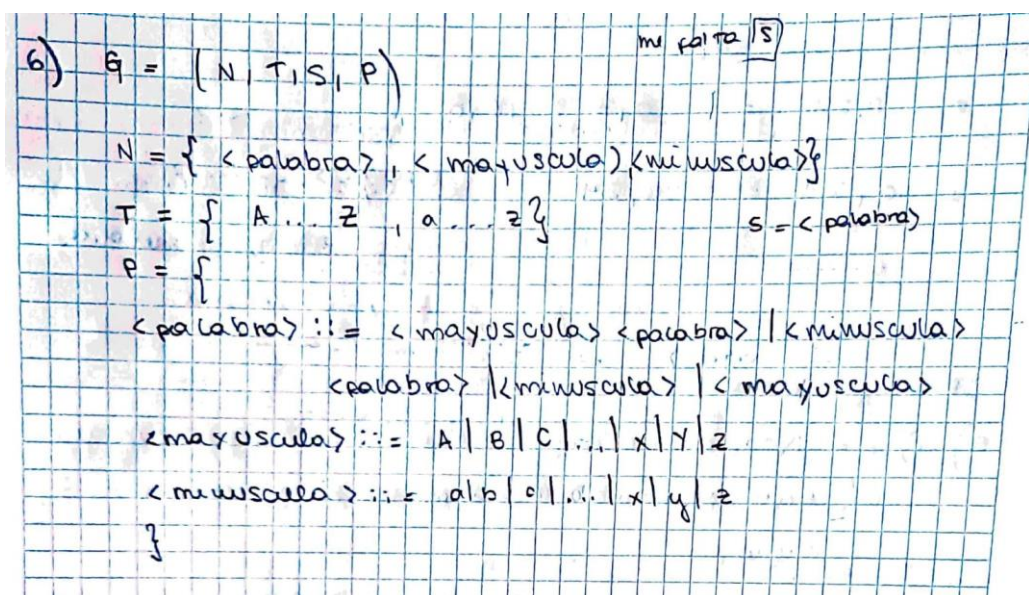 me falta S
6) G = (N, T, S, P)
N = { <palabra>, <mayuscula>, <minuscula>}
T = { A ... Z , a ... z}
S = <palabra>
P = {
<palabra> ::= <mayuscula> <palabra> | <minuscula>
<palabra> | <minuscula> | <mayuscula>
<mayuscula> ::= A | B | C |...| X | Y | Z
<minuscula> ::= a | b | c |...| x | y | z
}